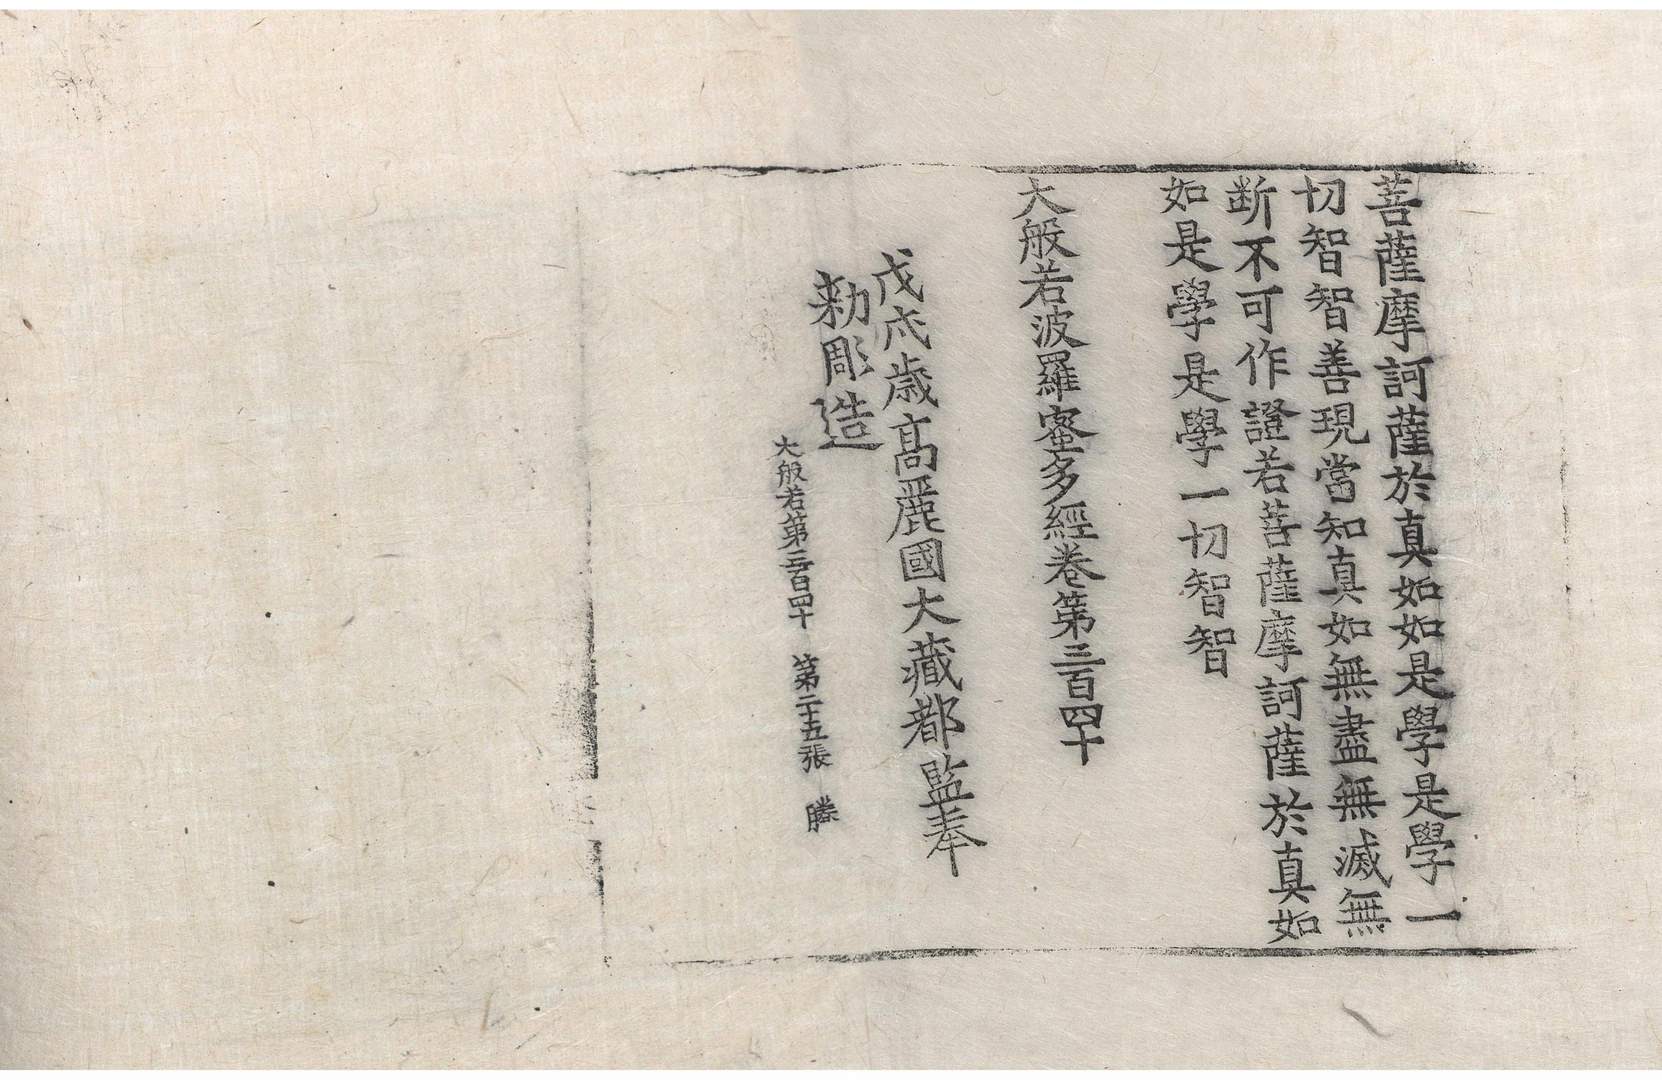 菩薩摩訶薩於真如如是學是學一
切智智善現當知真如無盡無滅無
断不可作證若菩薩摩訶薩於真如
如是學是學一切智智
大般若波羅蜜多經卷第三百四十
戊戌歲高麗國大藏都監奉
勑彫造
大般若第三百四十 第二十五張